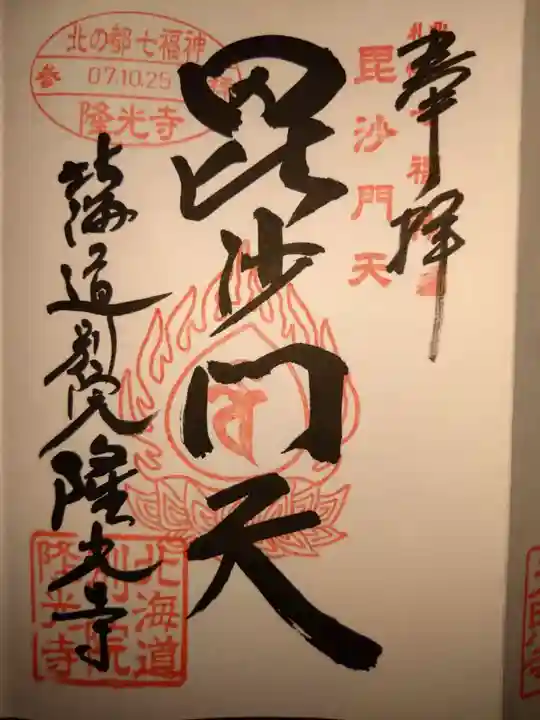 奉拝
毘沙門天
毘沙門天
北の都七福神
参 07.10.25 拝
隆光寺
北海道別院隆光寺
北海道
別院
隆光寺